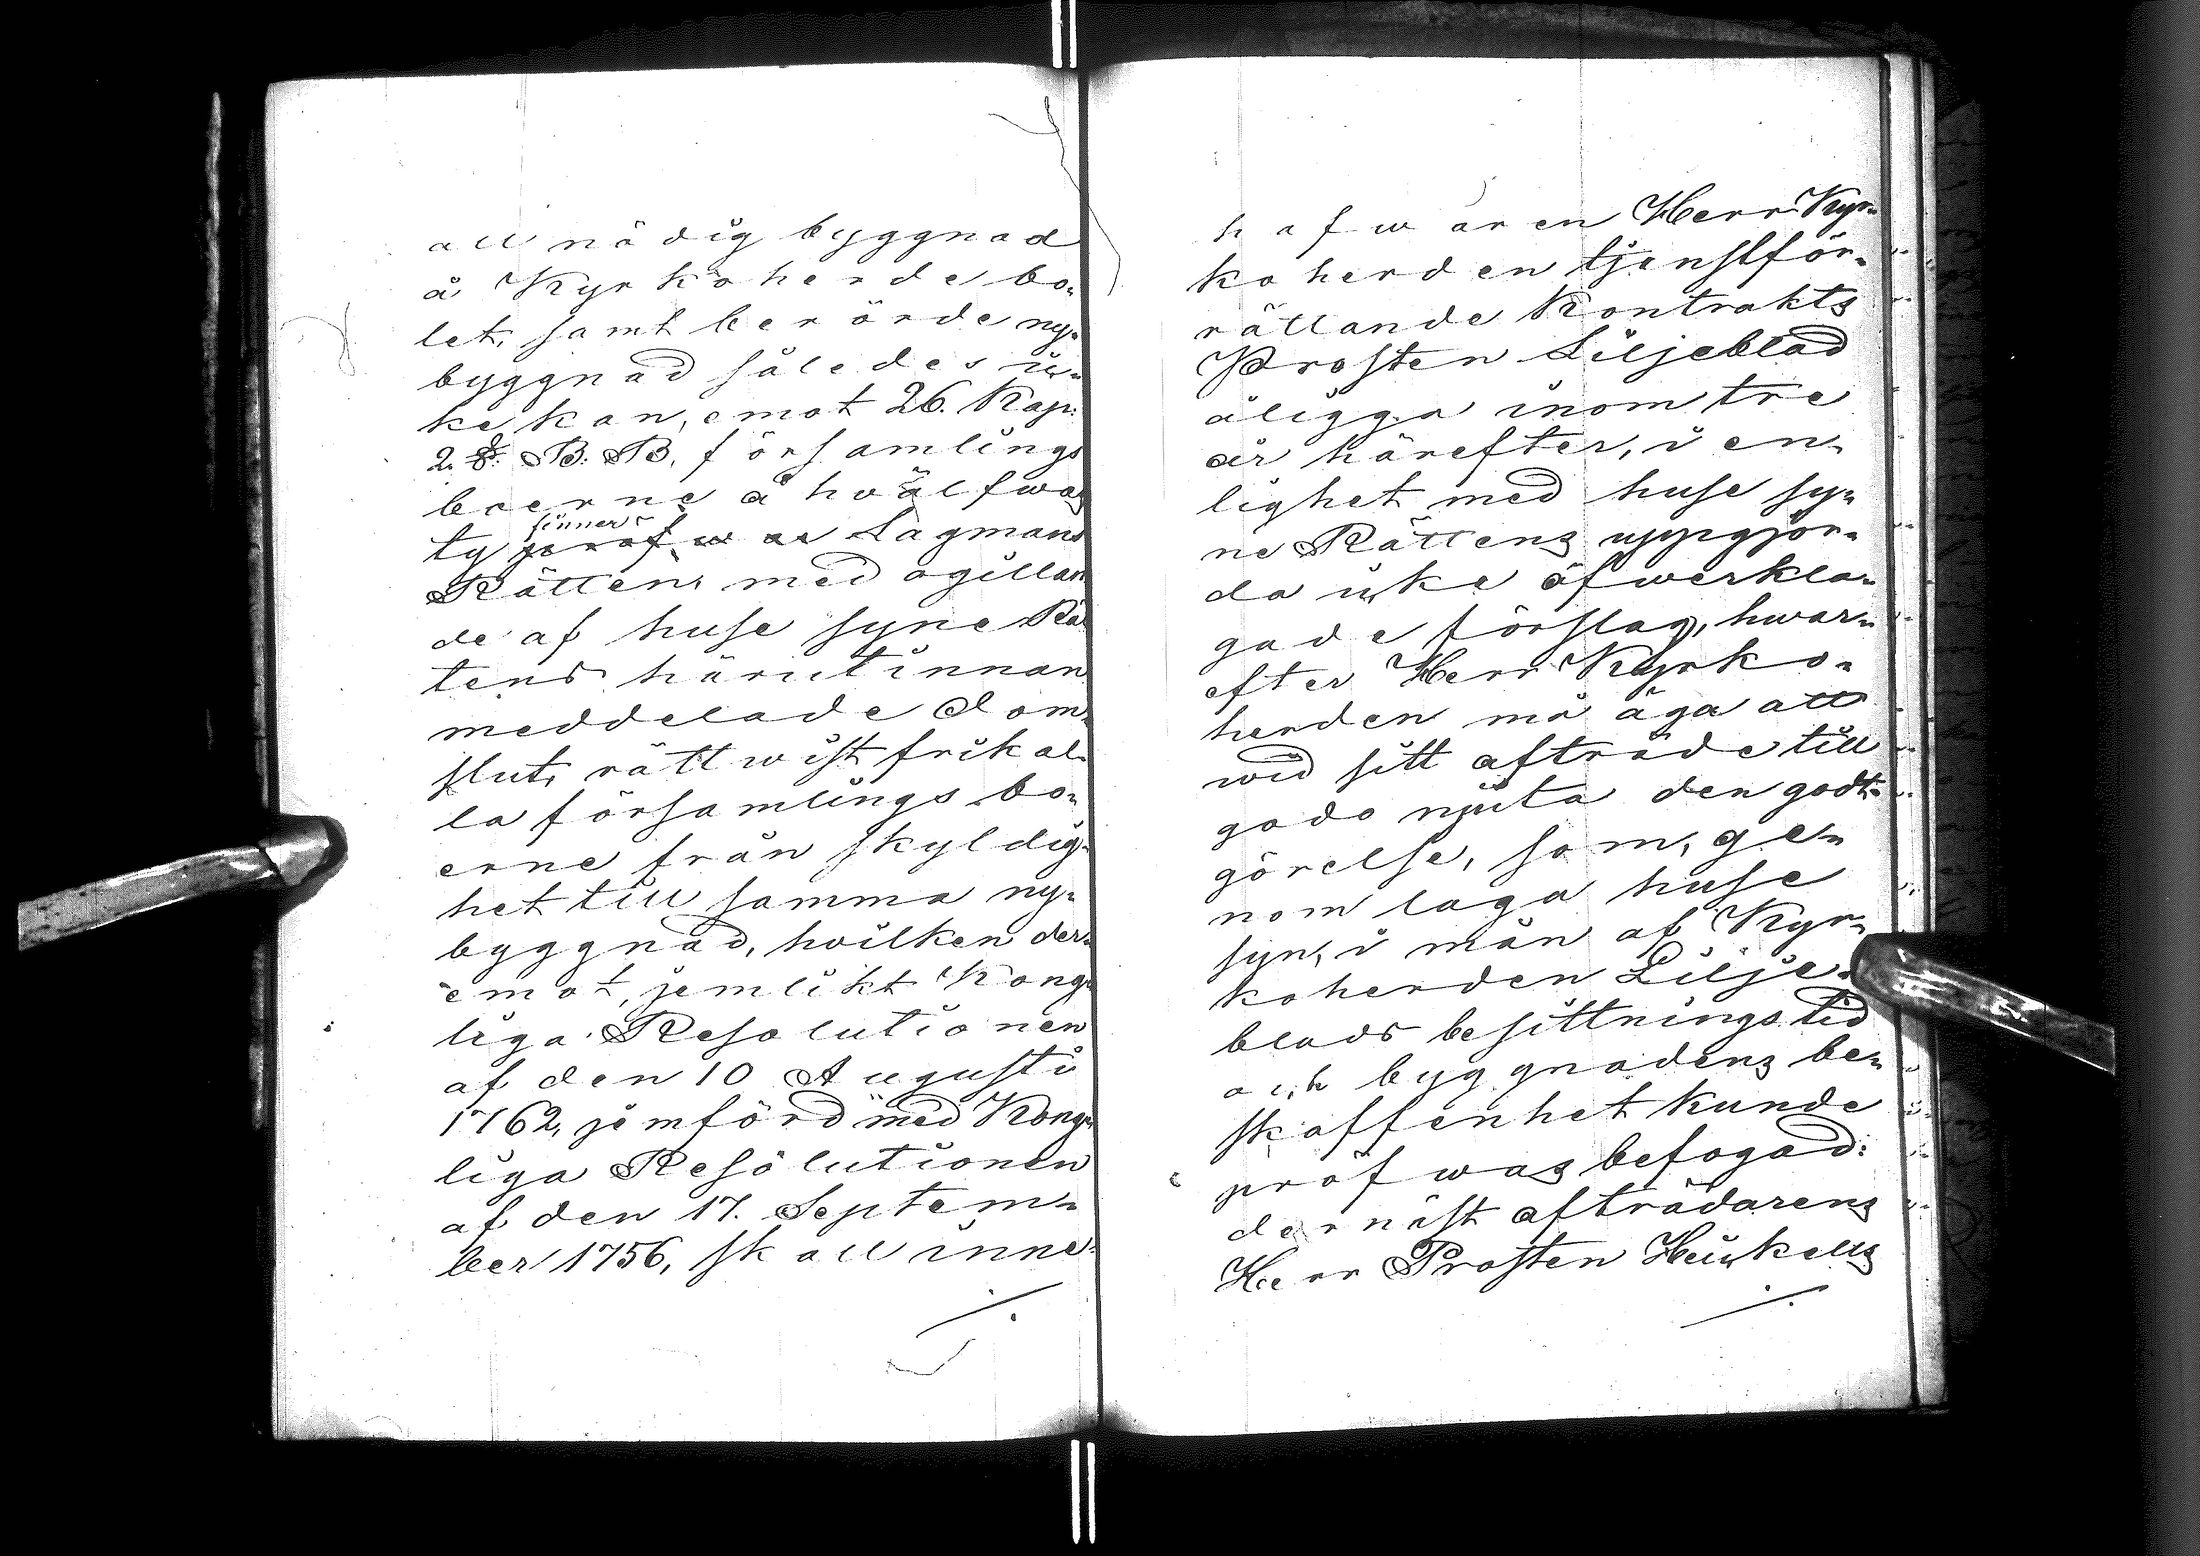 all nödig byggnad
å Kyrkoherde bo-
let, samt berörde ny-
byggnad således ic-
ke kan, emot 26. Kap:
2. §. B. B. församlings
boerne å hwälfwas
ty finner Lagmans
Rätten, med ogillan
de af huse syne Rä
tens härutinnan
meddelade dom-
slut, rättwist frikal-
la församlings bo-
erne från skyldig-
het till samma ny-
byggnad, hvilken der-
emot, jemlikt Kong-
liga Resolutionen
af den 10 Augusti
1762, jemförd med Kong-
liga Resolutionen
af den 17. Septem-
ber 1756, skall inne-
hafwaren Herr Kyr-
koherden tjenstför-
rättande Kontrakts
Prosten Liljeblad
åligga inom tre
år härefter, i en-
lighet med huse sy-
ne Rättens uppgjor-
da icke öfwerkla-
gade förslag, hwar-
efter Herr Kyrko-
herden må äga att
wid sitt afträde till
godo njuta den godt-
görelse, som, ge-
nom laga huse
syn, i mån af Kyr-
koherden Lilje-
blads besittningstid
och byggnadens be-
skaffenhet kunde
pröfwas befogad:
dernäst afträdarens
Herr Prosten Heickells